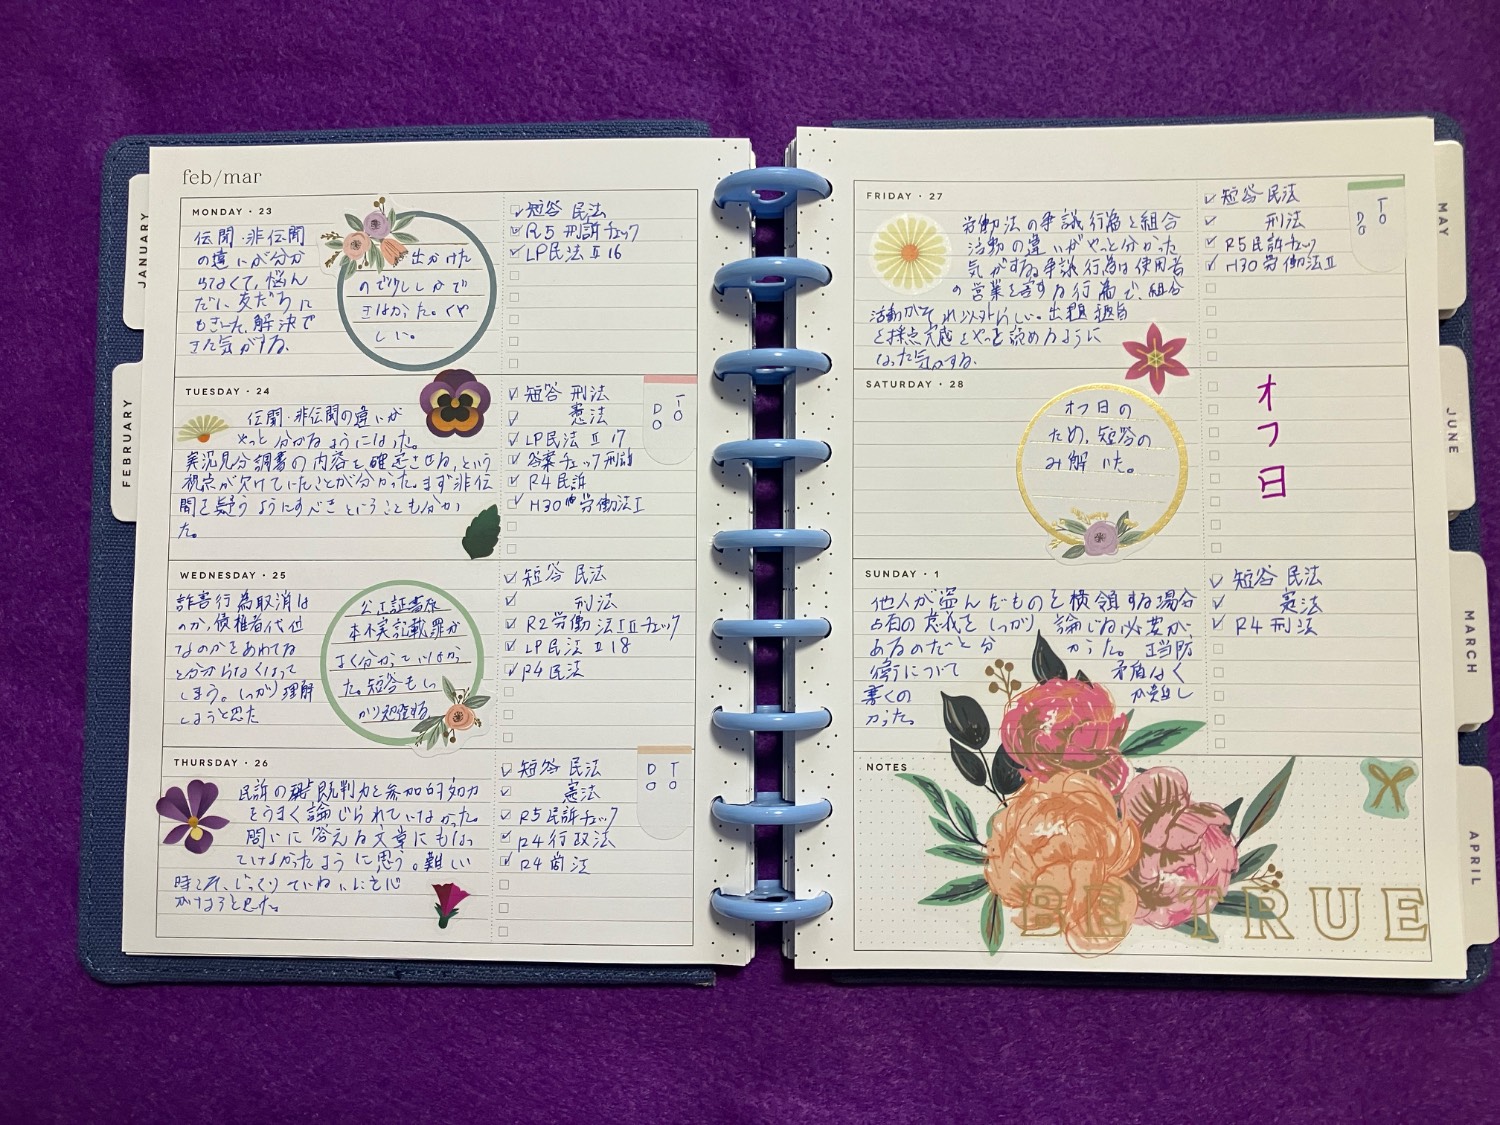 feb/mar
MONDAY・23
伝聞・非伝聞
の違いが分か
らなくて、悩ん
だ。友だちに
もきいた。解決で
きた気がする。
出かけた
ので少ししかで
きなかった。くや
しい。
短答 民法
R5 刑訴チェック
LP民法Ⅱ16
TUESDAY・24
伝聞・非伝聞の違いが
やっと分かるようになった。
実況見分調書の内容を確定させる、という
視点が欠けていたことが分かった。まず非伝
聞を疑うようにすべきということも分かっ
た。
短答 刑法
憲法
LP民法Ⅱ17
答案チェック刑訴
R4民訴
H30 労働法Ⅰ
TO
DO
WEDNESDAY・25
詐害行為取消な
のか、債権者代位
なのかをあわてる
と分からなくなって
しまう。しっかり理解
しようと思った
公正証書原
本不実記載罪が
よく分かっていなかっ
た。短答もしっ
かり勉強する。
短答 民法
刑法
R2労働法ⅠⅡチェック
LP民法Ⅱ18
R4民法
THURSDAY・26
民訴の既判力と参加的効力
をうまく論じられていなかった。
問いに答える文章にもなっ
ていなかったように思う。難しい
時こそ、じっくりていねいにを心
がけようと思った。
短答 民法
憲法
R5民訴チェック
R4行政法
R4商法
TO
DO
FRIDAY・27
労働法の争議行為と組合
活動の違いがやっと分かった
気がする。争議行為は使用者
の営業を害する行為で、組合
活動がそれ以外らしい。出題趣旨
と採点実感をやっと読めるように
なった気がする。
短答 民法
刑法
R5民訴チェック
H30労働法Ⅱ
TO
DO
SATURDAY・28
オフ日の
ため、短答の
み解いた。
オ
フ
日
SUNDAY・1
他人が盗んだものを横領する場合
占有の意義をしっかり論じる必要が
あるのだと分かった。正当防
衛について矛盾なく
書くのが難し
かった。
短答 民法
憲法
R4 刑法
NOTES
BE TRUE
JANUARY
FEBRUARY
MAY
JUNE
MARCH
APRIL